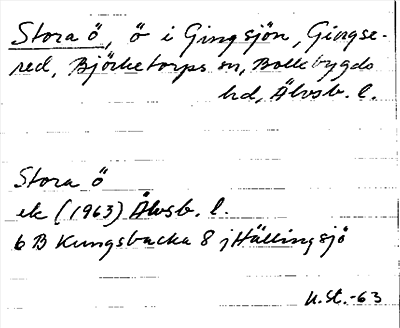 Stora ö, ö i Gingsjön, Gingse-
red, Björketorps sn, Bollebygds
hd, Älvsb. l.
Stora ö
ek (1963) Älvsb. l.
6 B Kungsbacka 8 j Hällingsjö
U.St.-63